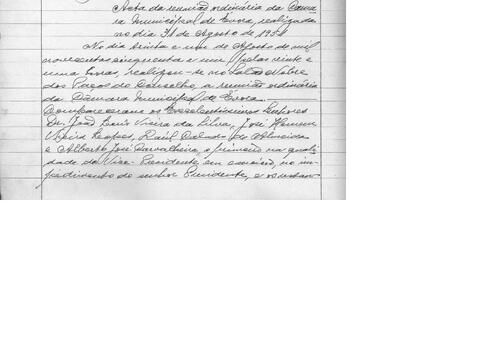 Acta da reunião ordinária da Câma-
ra Municipal de Évora, realizada
no dia 31 de Agosto de 1951
No dia trinta e um de Agosto de mil
novecentos cinquenta e um, pelas vinte e
uma horas, realizou-se no Salão Nobre
dos Paços do Concelho, a reunião ordinária
da Câmara Municipal de Évora.
Compareceram os Excelentíssimos Senhores
Dr. João Luís Vieira da Silva, José Homem
Vieira Lopes, Raúl de Almeida
e Alberto José Carvalheira, o primeiro na quali-
dade de Vice-Presidente, em exercício, no im-
pedimento do senhor Presidente, e os restan-